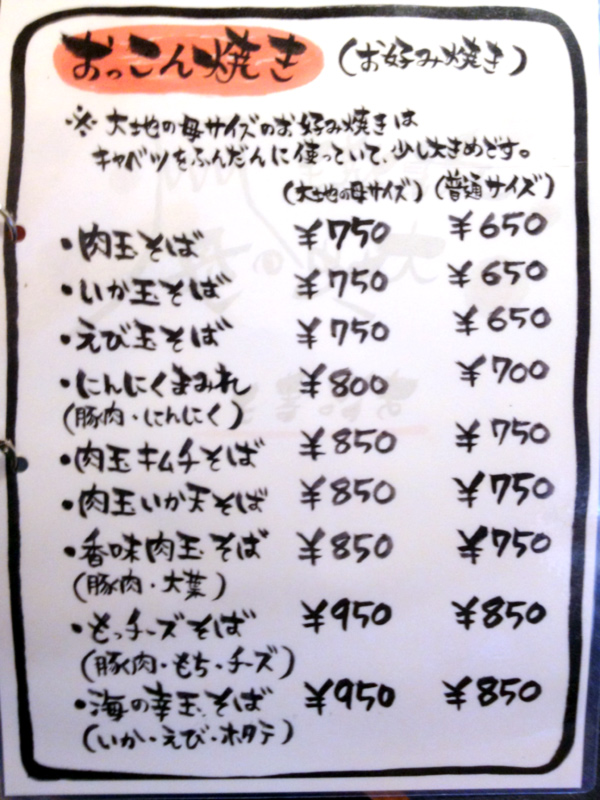 おっこん焼き (お好み焼き)
※ 大地の母サイズのお好み焼きは
キャベツをふんだんに使っていて、少し大きめです。
(大地の母サイズ) (普通サイズ)
・肉玉そば ¥750 ¥650
・いか玉そば ¥750 ¥650
・えび玉そば ¥750 ¥650
・にんにくまみれ ¥800 ¥700
(豚肉・にんにく)
・肉玉キムチそば ¥850 ¥750
・肉玉いか天そば ¥850 ¥750
・香味肉玉そば ¥850 ¥750
(豚肉・大葉)
・もっチーズそば ¥950 ¥850
(豚肉・もち・チーズ)
・海の幸玉そば ¥950 ¥850
(いか・えび・ホタテ)